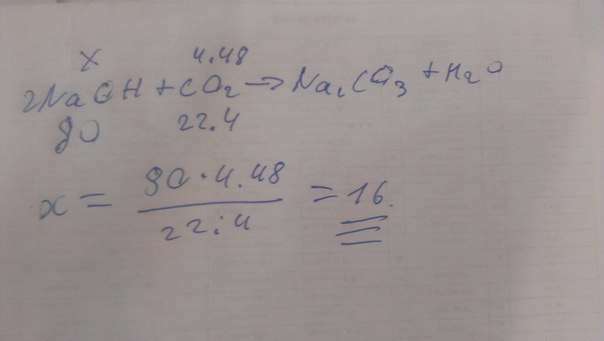 x 4.48
2NaOH + CO₂ → Na₂CO₃ + H₂O
80 22.4
x = 80 · 4.48 / 22.4 = 16.